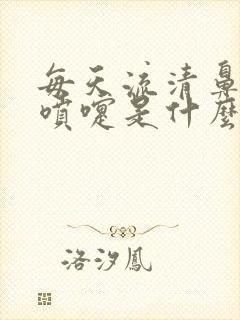 每天流清鼻
噴嚏是什麼
洛汐鳳